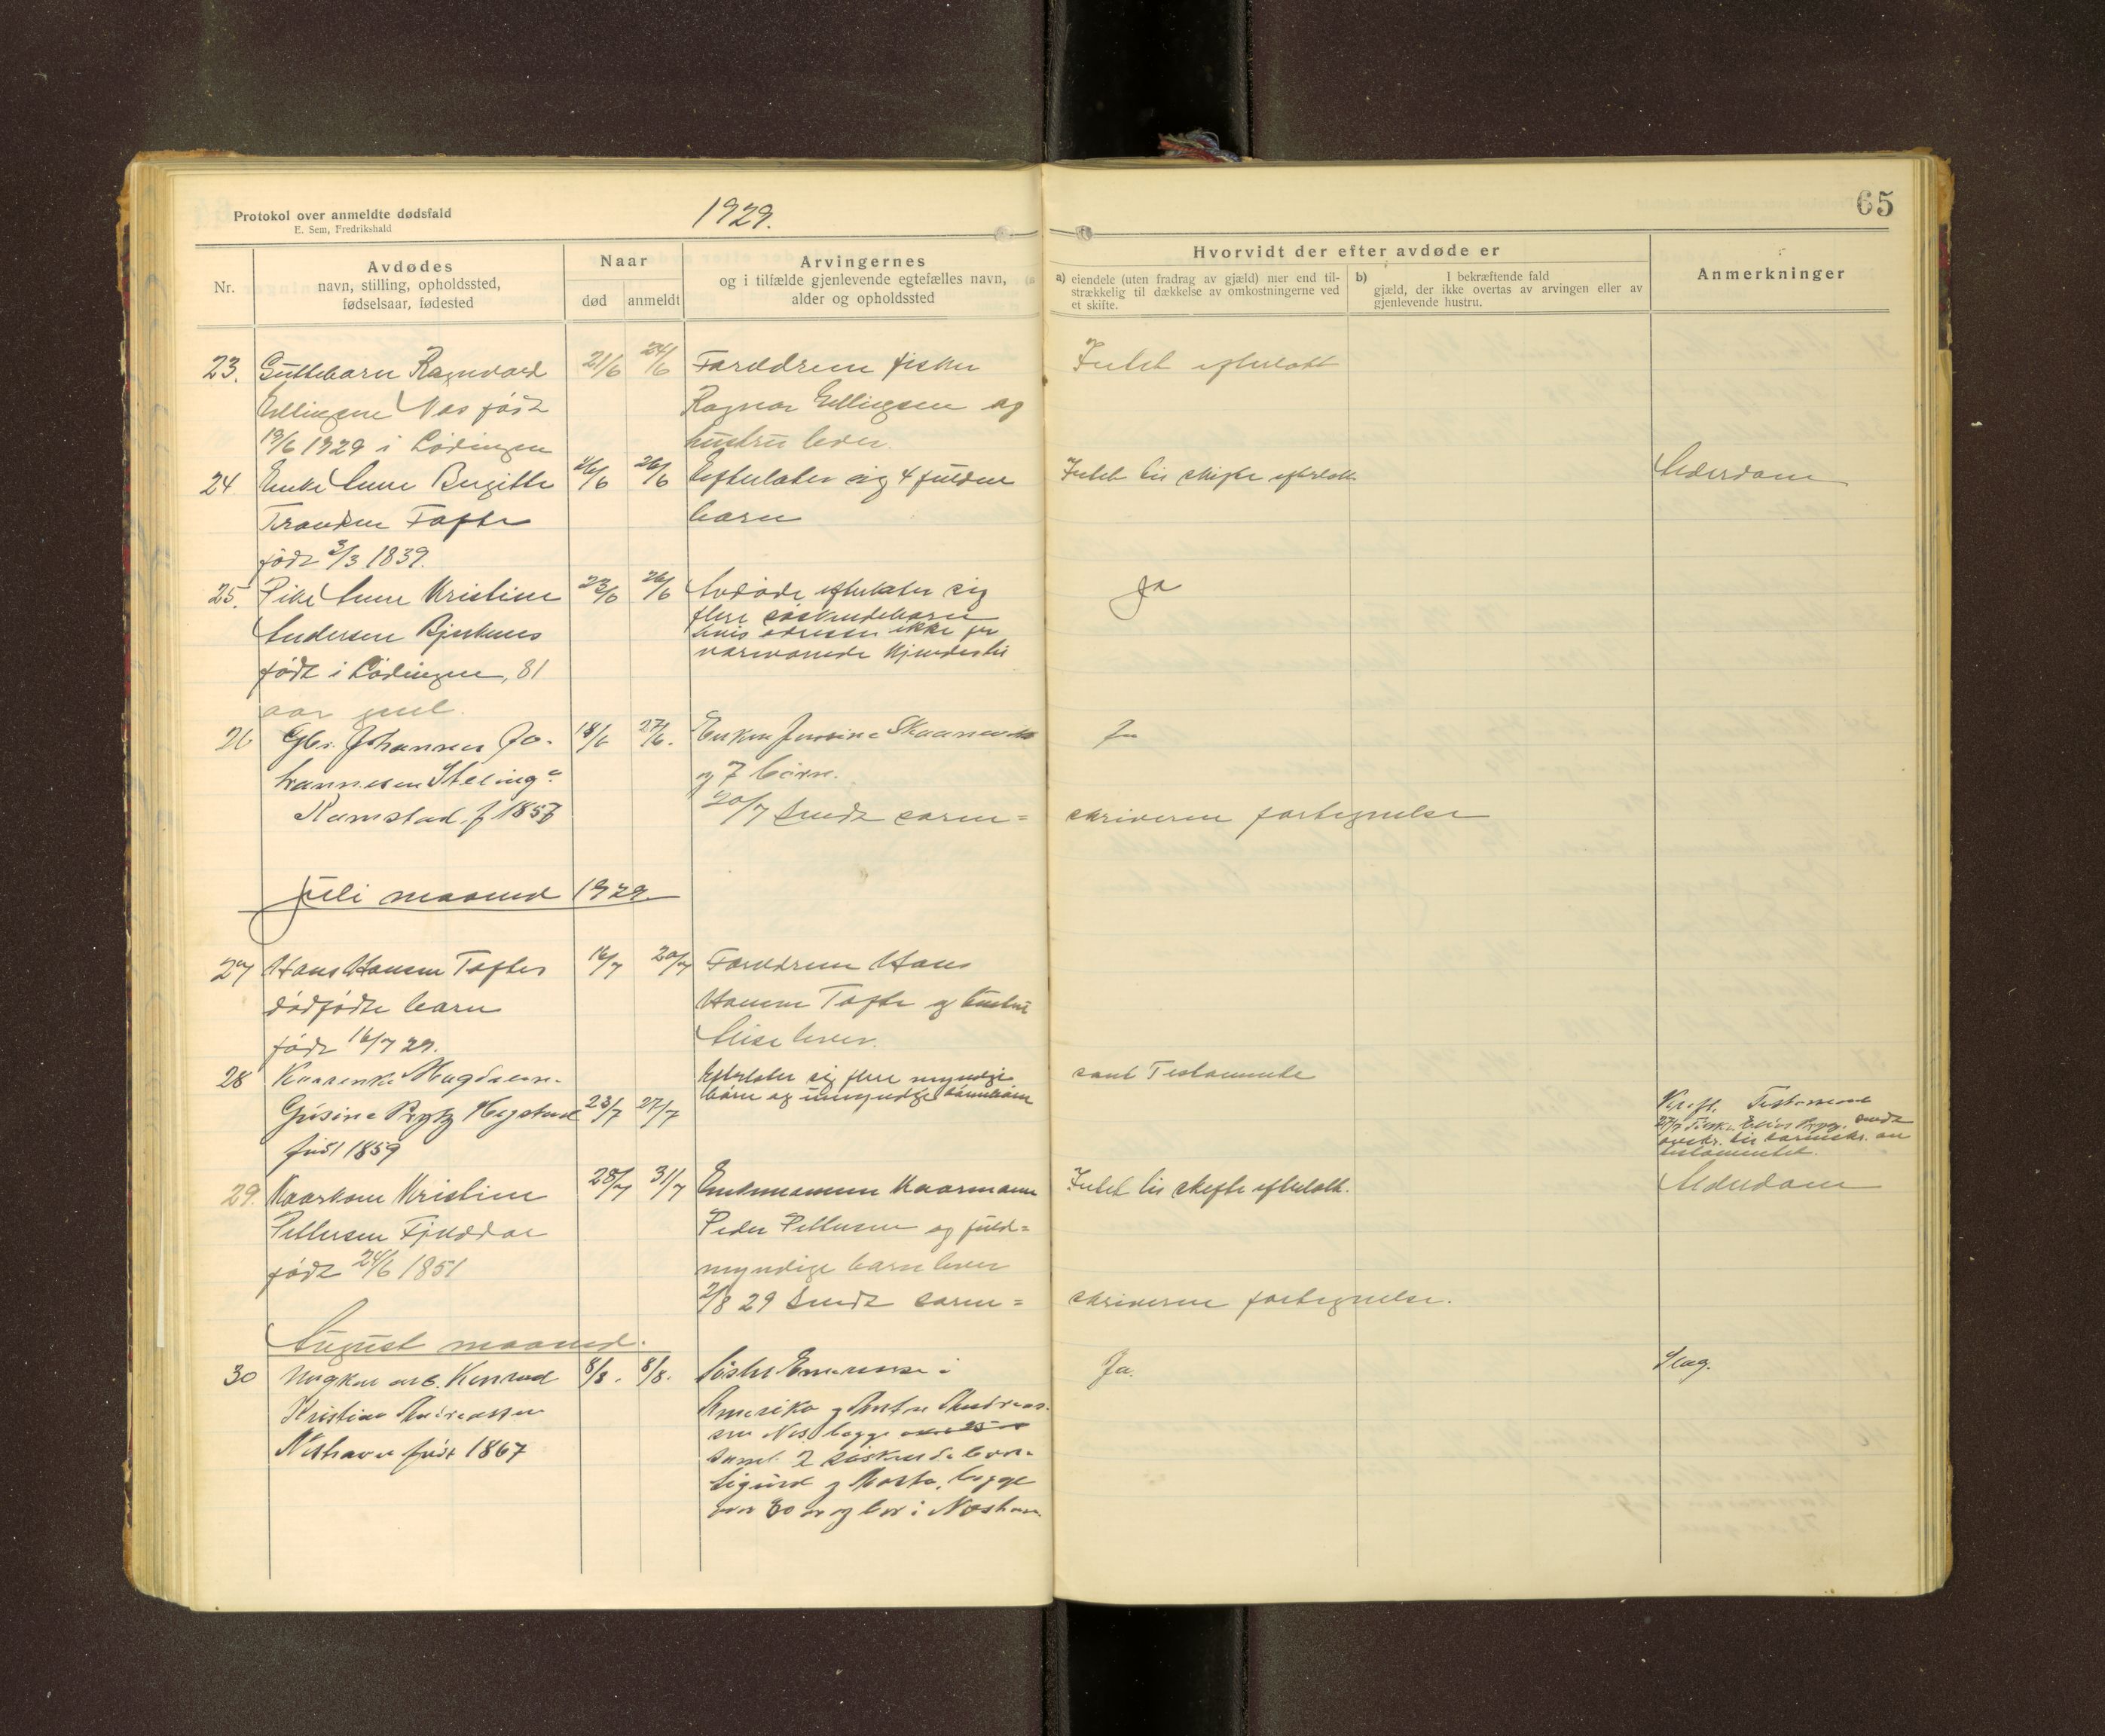 65
Protokol over anmeldte dødsfald
E. Sem, Fredrikshald
1929.
Nr.
Avdødes
navn, stilling, opholdssted,
fødselsaar, fødested
Naar
død
anmeldt
Arvingernes
og i tilfælde gjenlevende egtefælles navn,
alder og opholdssted
Hvorvidt der efter avdøde er
a) eiendele (uten fradrag av gjæld) mer end til-
strækkelig til dækkelse av omkostningerne ved
et skifte.
b) I bekræftende fald
gjæld, der ikke overtas av arvingen eller av
gjenlevende hustru.
Anmerkninger
23. Guttebarn Ragnvald 21/6 24/6 Forældrene fisker Intet efterlatt
Ellingsen Nes født Ragnar Ellingsen og
19/6 1929 i Lødingen hustru lever.
24 Enke Anne Birgitte 26/6 Efterlater sig 4 fuldm Intet til skifte efterlatt Alderdom
Tofte barn
født 3/3 1839.
25. Pike Anne Kristine 23/6 26/6 Avdøde efterlater sig Ja
Andersen flere søskendebarn
hvis adresser ikke er
født i Lødingen, 81 nærværende kjendt
aar gml.
26 Johannes Jo- 18/6 27/6. Enken Ja
hannesen og 7 børn.
Ramstad f 1857 20/7 Sendt soren=skriveren fortegnelse
Juli maaned 1929.
27 Hans Hansen Toftes 16/7 20/7 Forældrene Hans
dødfødte barn Hansen Tofte og hustru
født 16/7 29. Elise lever.
28 Efterlater sig flere myndige samt Testamente
23/7 27/7 børn og umyndige
født 1859
Testament
27/7 sendt
testamentet.
29. Kaarkone Kristine 28/7 31/7 Enkemannen Kaarmann Intet til skifte efterlatt. Alderdom
Pettersen Fjelddal Peder Pettersen og fuld=
født 24/6 1851 myndige barn lever
2/8 29 Sendt soren=skriveren fortegnelse.
August maaned.
30 Ungkar arb. Konrad 8/8. 8/8. Søster i Ja. Slag.
Kristian Andreassen Amerika og Andreas-
Neshavn født 1867 sen Nes, begge
samt 2 søskendebarn
Sigurd og begge
over og bor i Neshavn.